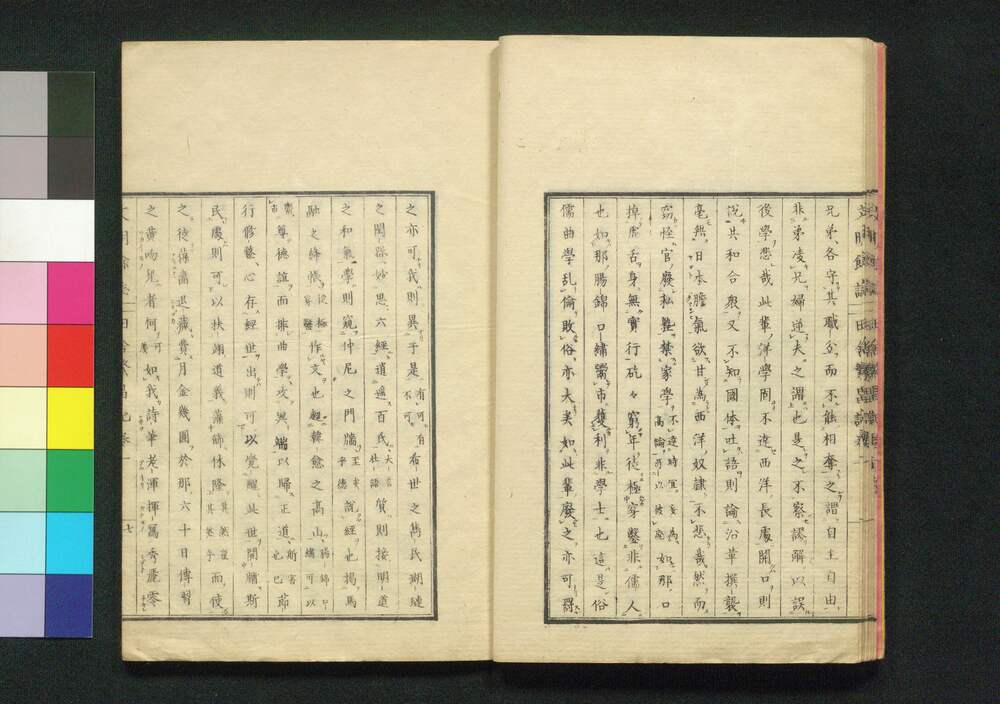 兄弟各守其職分而不能相奪之謂自主自由
非弟凌兄婦逆夫之謂也是之不察謬解以誤
後學悲哉此輩洋學固不達西洋長處開口則
說共和合衆又不知國体吐語則論沿革撰襲
毫無日本膽氣欲甘為西洋奴隷不悲哉然而
竊怪官廢私塾禁家學不達時宜妄為高論所以被廢如那口
掉虎舌身無實行矻々窮年徒極穿鑿非儒人
也如那腸錦口繡鬻市獲利非學士也這是俗
儒曲學乱倫敗俗亦大矣如此輩廢之亦可爾
之亦可我則異于是有可有不可有希世之雋民瑚璉
之閣蹤妙思六經遺遙百氏質則接明道
之和氣學則窺仲尼之門牆說經也揭馬
融之絳帳作文也超韓愈之高山
尊德誼而排曲學攻異端以歸正道
行修整心存經世出則可以覺醒此世開牖斯
民處則可以扶翊道義藻飾休隆而彼
之徒俸滿退藏貴月金幾圓於那六十日傳習
之黃吻兒者何如我詩華老渾揮寫秀麗零
七